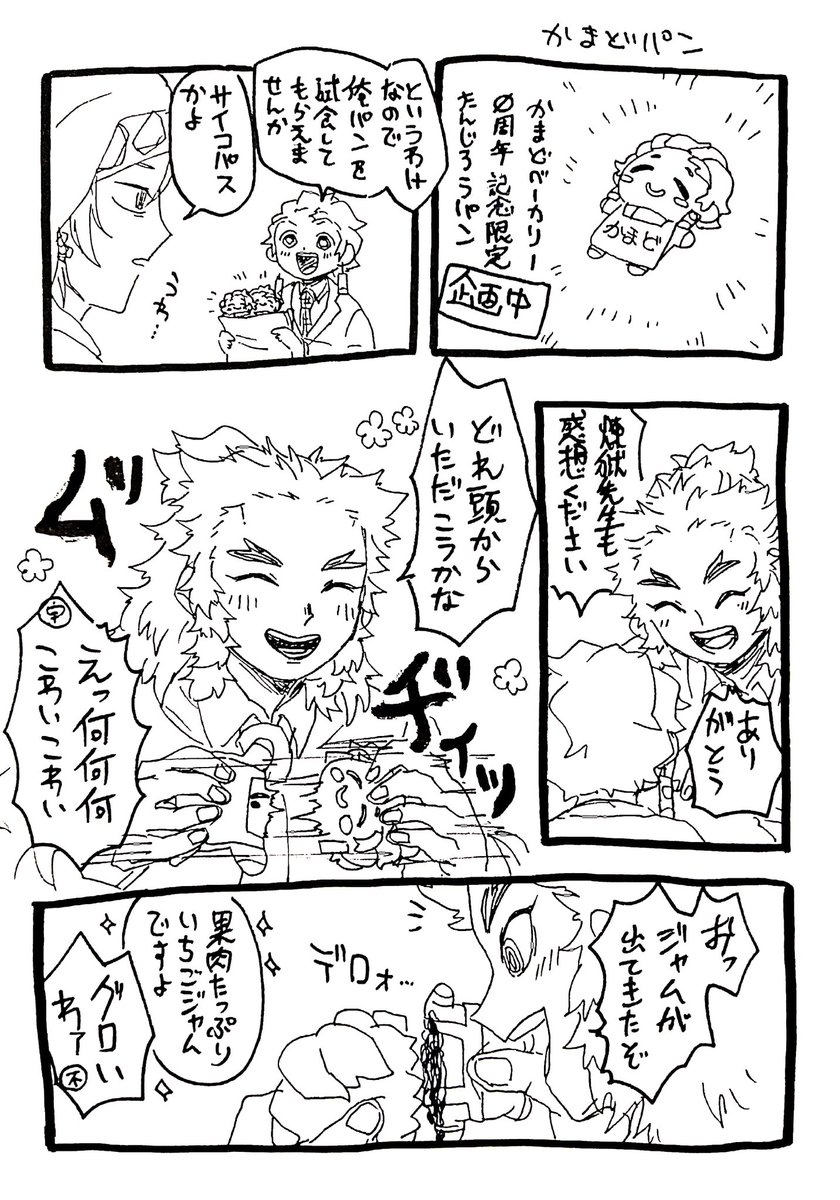 かまどパン
かまどベーカリー
〇周年記念限定
たんじろうパン
企画中
かまど
というわけ
なので
俺パンを
試食して
もらえま
せんか
サイコパス
かよ
うわ…
煉獄先生も
感想ください
あり
がとう
どれ頭から
いただこうかな
ムンッ
ヂィッ
宇
えっ何何何
こわいこわい
おっ
ジャムが
出てきたぞ
デロォ…
果肉たっぷり
いちごジャム
ですよ
グロい
わァ
不